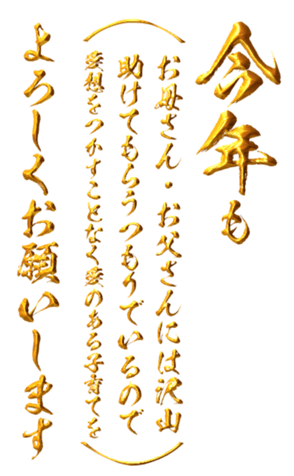 今年も
(お母さん・お父さんには沢山
助けてもらうつもりでいるので
愛想をつかすことなく愛のある子育てを)
よろしくお願いします